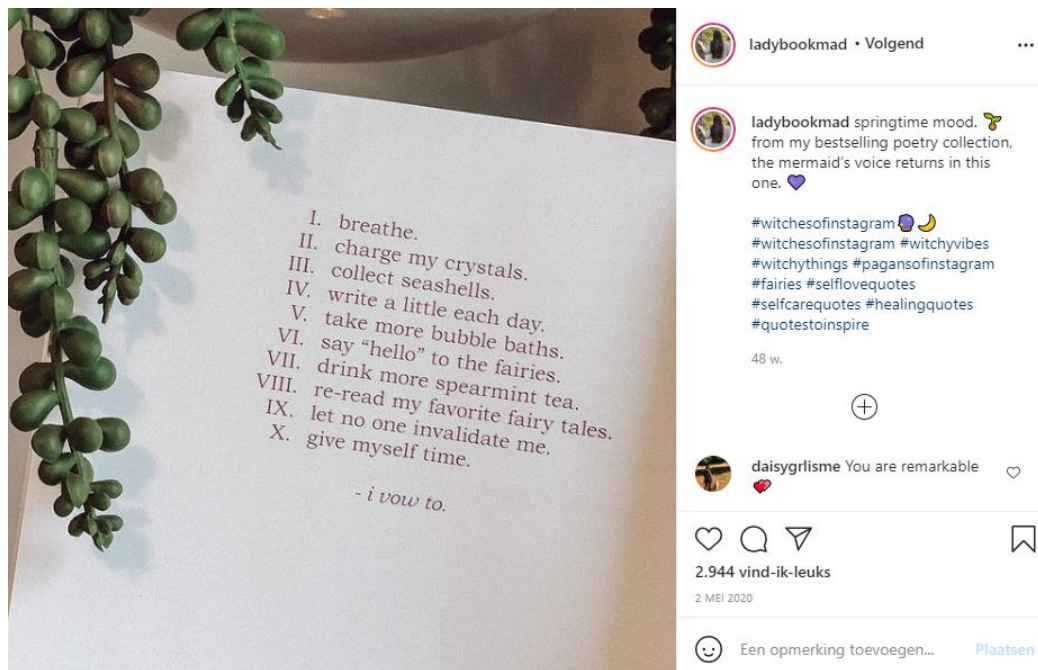 I. breathe.
II. charge my crystals.
III. collect seashells.
IV. write a little each day.
V. take more bubble baths.
VI. say “hello” to the fairies.
VII. drink more spearmint tea.
VIII. re-read my favorite fairy tales.
IX. let no one invalidate me.
X. give myself time.
- i vow to.
ladybookmad • Volgend
ladybookmad springtime mood. 🌱
from my bestselling poetry collection,
the mermaid’s voice returns in this
one. 💜
#witchesofinstagram🔮🌙
#witchesofinstagram #witchyvibes
#witchythings #pagansofinstagram
#fairies #selflovequotes
#selfcarequotes #healingquotes
#quotestoinspire
48 w.
daisygrlisme You are remarkable
💕
2.944 vind-ik-leuks
2 MEI 2020
Een opmerking toevoegen... Plaatsen